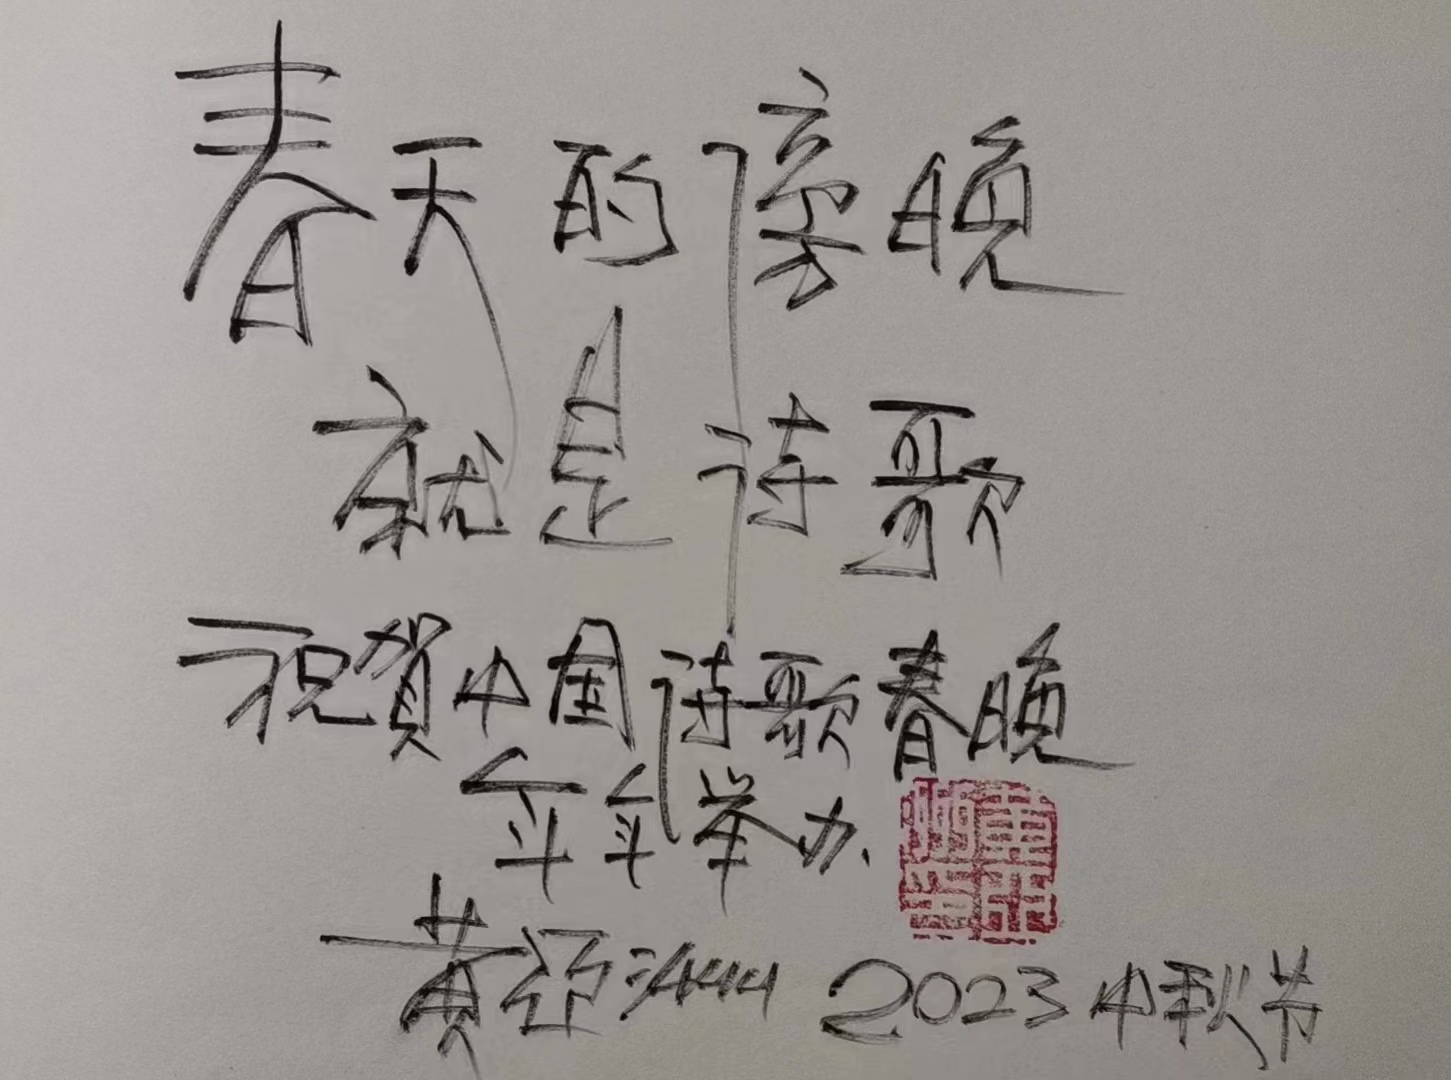 春天的傍晚
就是诗歌
祝賀中国诗歌春晚
年年举办.
黄亞洲 2023中秋节